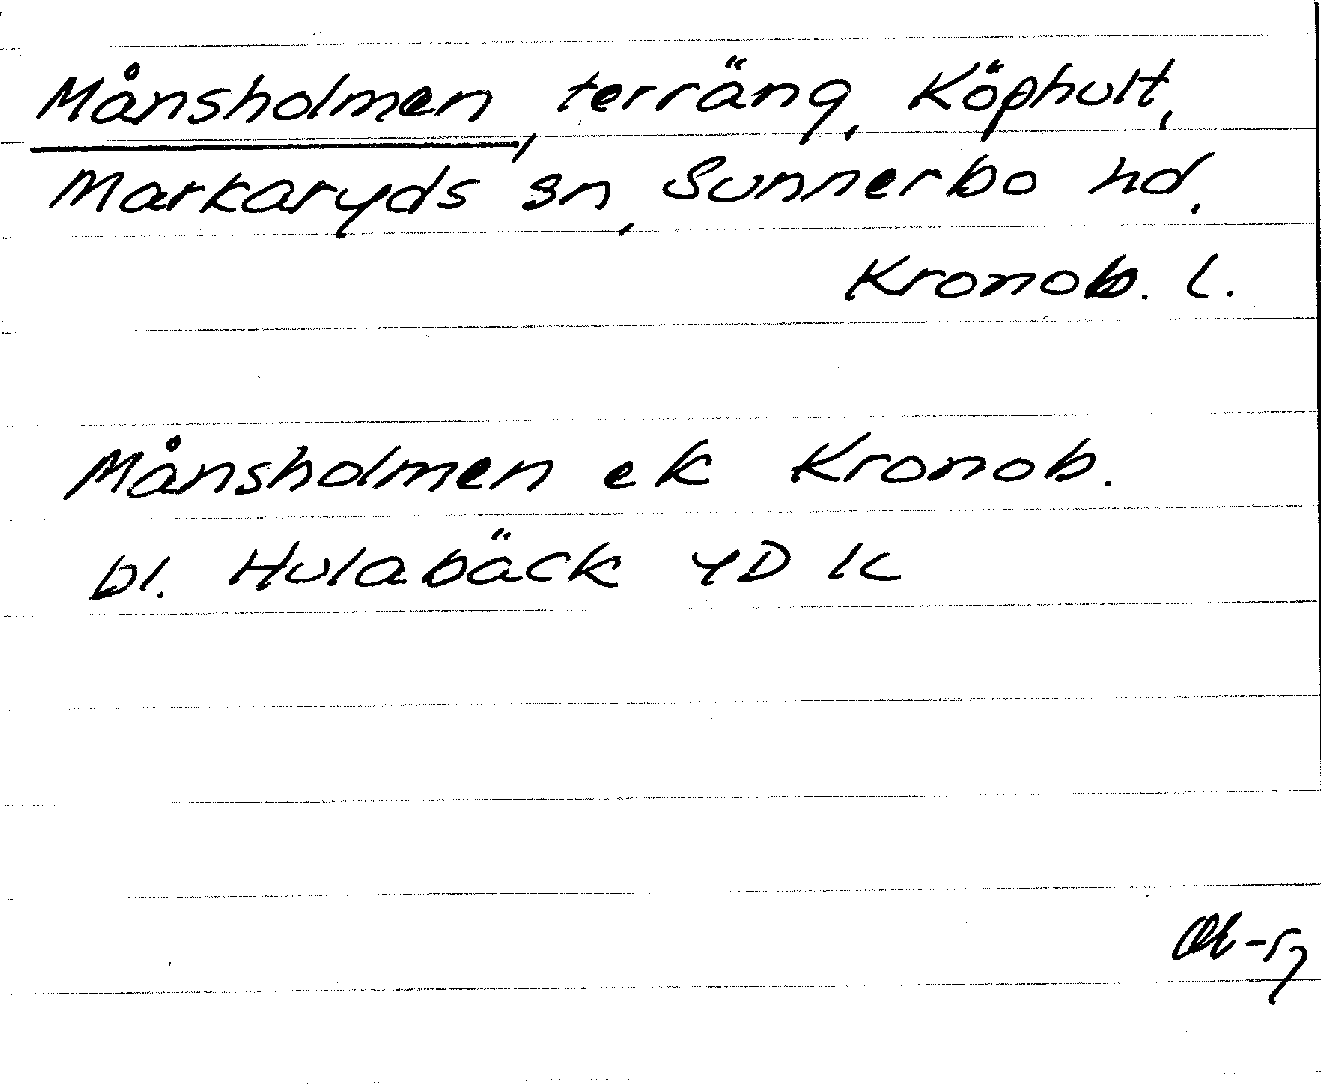 Månsholmen, terräng, Köphult,
Markaryds sn, Sunnerbo hd,
Kronob. l.
Månsholmen ek Kronob.
bl. Hulabäck 4D k